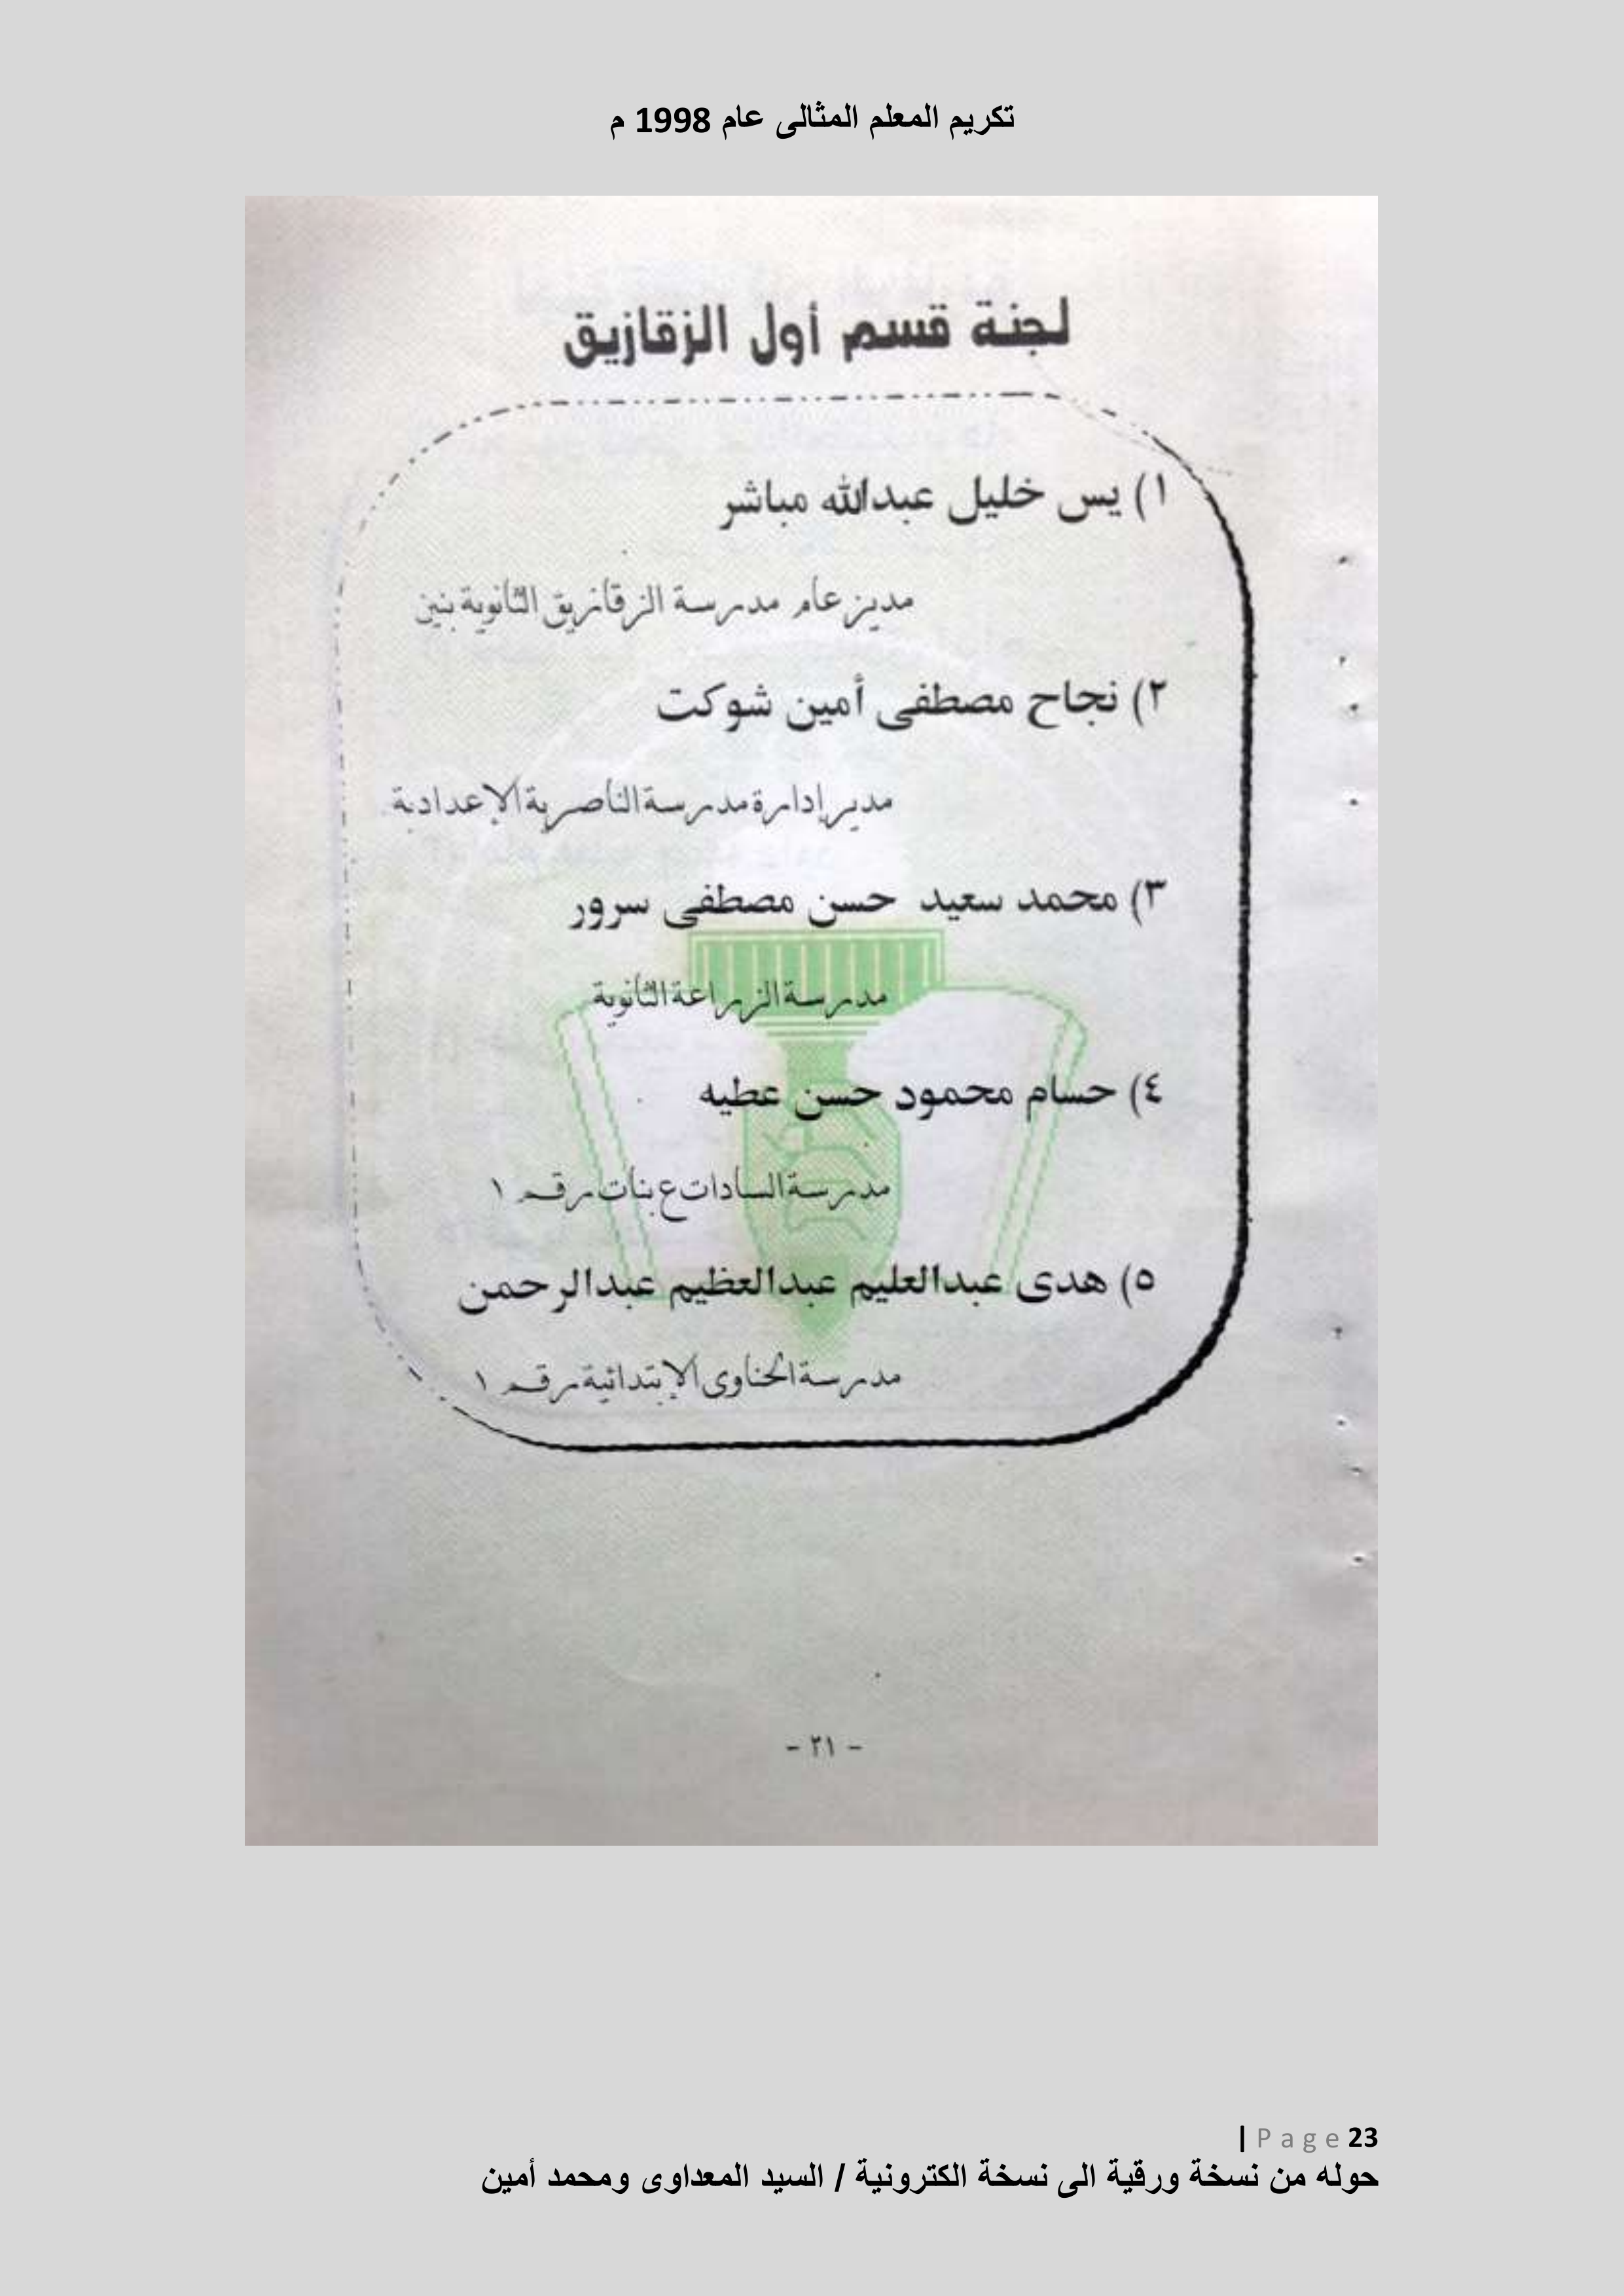 تكريم المعلم المثالى عام 1998 م
لجنة قسم أول الزقازيق
١) يس خليل عبدالله مباشر
مدير عام مدرسة الزقازيق الثانوية بنين
٢) نجاح مصطفى أمين شوكت
مدير إدارة مدرسة الناصرية الإعدادية
٣) محمد سعيد حسن مصطفى سرور
مدرسة الزراعة الثانوية
٤) حسام محمود حسن عطيه
مدرسة السادات ع بنات رقم ١
٥) هدى عبدالعليم عبدالعظيم عبدالرحمن
مدرسة الحناوى الإبتدائية رقم ١
- ٢١ -
| Page 23
حوله من نسخة ورقية الى نسخة الكترونية / السيد المعداوى ومحمد أمين